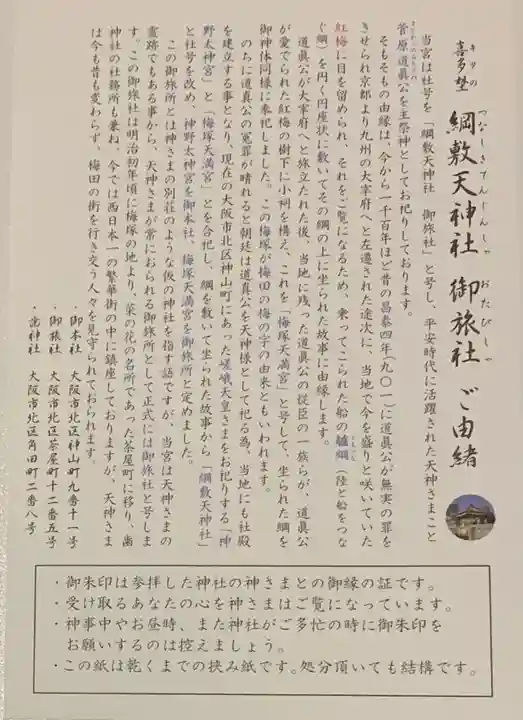 喜多埜 綱敷天神社 御旅社 ご由緒
キタの つなしきてんじんしゃ おたびしゃ
当宮は社号を「綱敷天神社 御旅社」と号し、平安時代に活躍された天神さまこと
菅原道眞公を主祭神としてお祀りしております。
そもそもの由緒は、今から一千百年ほど昔の昌泰四年(九〇一)に道眞公が無実の罪を
きせられ京都より九州の大宰府へと左遷された途次に、当地で今を盛りと咲いていた
紅梅に目を留められ、それをご覧になるため、乗ってこられた船の艫綱(陸と船をつな
ぐ綱)を円く円座状に敷いてその綱の上に坐られた故事に由縁します。
道眞公が大宰府へと旅立たれた後、当地に残った道眞公の従臣の一族らが、道眞公
が愛でられた紅梅の樹下に小祠を構え、これを「梅塚天満宮」と号して、坐られた綱を
御神体同様に奉祀しました。この梅塚が梅田の梅の字の由来ともいわれます。
のちに道眞公の冤罪が晴れると朝廷は道眞公を天神様として祀る為、当地にも社殿
を建立する事となり、現在の大阪市北区神山町にあった嵯峨天皇さまをお祀りする「神
野太神宮」と「梅塚天満宮」とを合祀し、綱を敷いて坐られた故事から「綱敷天神社」
と社号を改め、神野太神宮を御本社、梅塚天満宮を御旅所と定めました。
この御旅所とは神さまの別荘のような仮の神社を指す語ですが、当宮は天神さまの
霊跡でもある事から、天神さまが常におられる御旅所として正式には御旅社と号しま
す。この御旅社は明治初年頃に梅塚の地より、菜の花の名所であった茶屋町に移り、歯
神社の社務所も兼ね、今では西日本一の繁華街の中に鎮座しておりますが、天神さま
は今も昔も変わらず、梅田の街を行き交う人々を見守られております。
・御本社 大阪市北区神山町九番十一号
・御旅社 大阪市北区茶屋町十二番五号
・歯神社 大阪市北区角田町二番八号
・御朱印は参拝した神社の神さまとの御縁の証です。
・受け取るあなたの心を神さまはご覧になっています。
・神事中やお昼時、また神社がご多忙の時に御朱印を
お願いするのは控えましょう。
・この紙は乾くまでの挟み紙です。処分頂いても結構です。